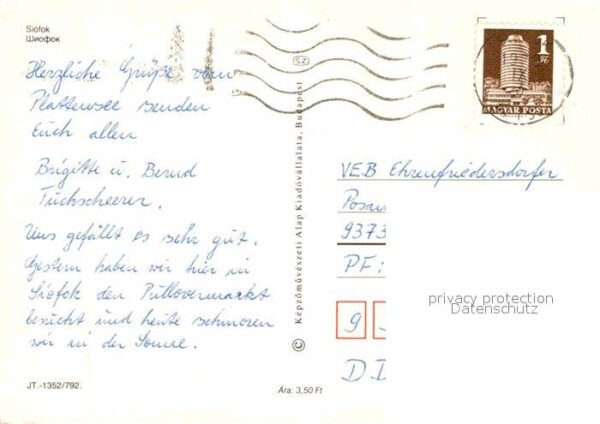 Siófok
Шиофок
Herzliche Grüße vom
Plattensee senden
Euch allen
Brigitte u. Bernd
Tuchscheerer.
Uns gefällt es sehr gut.
Gestern haben wir hier in
Siófok den Pullovermarkt
besucht und heute schmoren
wir in der Sonne.
JT.-1352/792.
Ára: 3,50 Ft
© Képzőművészeti Alap Kiadóvállalata, Budapest
SZ
1 Ft
MAGYAR POSTA
VEB Ehrenfriedersdorfer
9373
PF:
9
privacy protection
Datenschutz